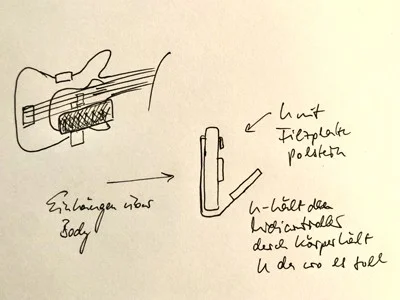 Einhängen über
Body
U mit
Filzplatte
polstern
U-hält den
Midicontroller
durch Körper hält
U da wo es soll